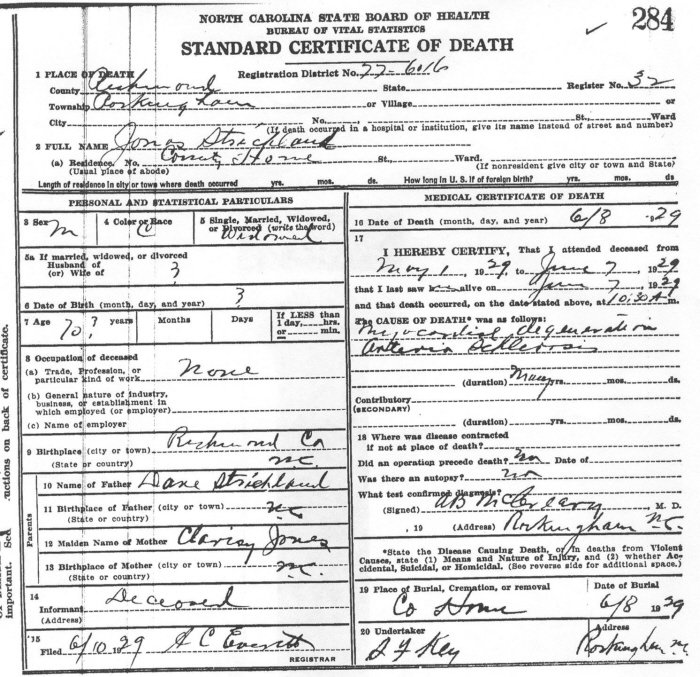 NORTH CAROLINA STATE BOARD OF HEALTH
BUREAU OF VITAL STATISTICS
STANDARD CERTIFICATE OF DEATH
284
1 PLACE OF DEATH Registration District No. 77-6016
County Richmond State Register No. 32
Township Rockingham or Village or
City No. St., Ward
(If death occurred in a hospital or institution, give its name instead of street and number)
2 FULL NAME Jonas Strickland
(a) Residence. No. County Home St., Ward.
(Usual place of abode) (If nonresident give city or town and State)
Length of residence in city or town where death occurred yrs. mos. ds. How long in U. S. if of foreign birth? yrs. mos. ds.
PERSONAL AND STATISTICAL PARTICULARS
3 Sex M
4 Color or Race C
5 Single, Married, Widowed, or Divorced (write the word) Widowed
5a If married, widowed, or divorced
Husband of
(or) Wife of ?
6 Date of Birth (month, day, and year) ?
7 Age 70? years Months Days If LESS than
1 day,....hrs.
or....min.
8 Occupation of deceased
(a) Trade, Profession, or
particular kind of work None
(b) General nature of industry,
business, or establishment in
which employed (or employer)
(c) Name of employer
9 Birthplace (city or town) Richmond Co
(State or country) NC.
Parents
10 Name of Father Dave Strickland
11 Birthplace of Father (city or town) NC
(State or country)
12 Maiden Name of Mother Clarisy Jones
13 Birthplace of Mother (city or town) NC.
(State or country)
14
Informant Deceased
(Address)
15
Filed 6/10 1929 A C Everett
REGISTRAR
MEDICAL CERTIFICATE OF DEATH
16 Date of Death (month, day, and year) 6/8 1929
17
I HEREBY CERTIFY, That I attended deceased from
May 1, 1929 to June 7, 1929
that I last saw alive on June 7, 1929
and that death occurred, on the date stated above, at 10:30 A m.
The CAUSE OF DEATH* was as follows:
Myocardial degeneration
Arterio Sclerosis
(duration) Many yrs. mos. ds.
Contributory
(SECONDARY)
(duration) yrs. mos. ds.
18 Where was disease contracted
if not at place of death?
Did an operation precede death? No Date of
Was there an autopsy? No
What test confirmed diagnosis?
(Signed) M. D.
, 19 (Address) Rockingham NC.
*State the Disease Causing Death, or in deaths from Violent
Causes, state (1) Means and Nature of Injury, and (2) whether Ac-
cidental, Suicidal, or Homicidal. (See reverse side for additional space.)
19 Place of Burial, Cremation, or removal Date of Burial
Co Home 6/8 1929
20 Undertaker Address
Key Rockingham NC
important. See
uctions on back of certificate.